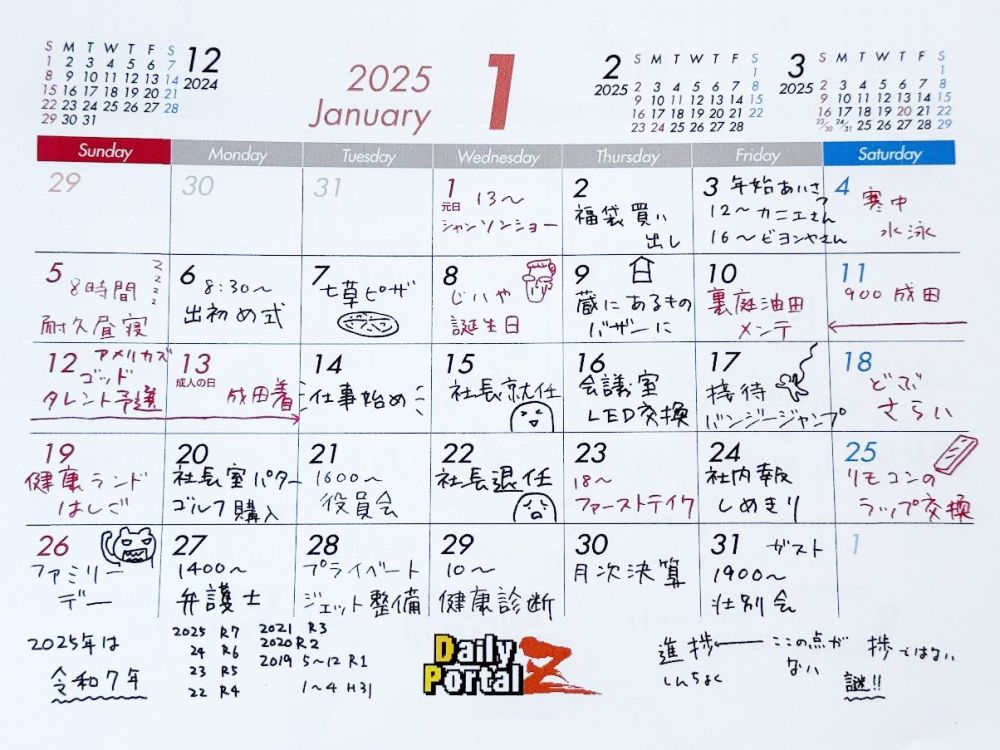 S M T W T F S
1 2 3 4 5 6 7
8 9 10 11 12 13 14
15 16 17 18 19 20 21
22 23 24 25 26 27 28
29 30 31
12
2024
2025
January
1
2
2025
S M T W T F S
1
2 3 4 5 6 7 8
9 10 11 12 13 14 15
16 17 18 19 20 21 22
23 24 25 26 27 28
3
2025
S M T W T F S
1
2 3 4 5 6 7 8
9 10 11 12 13 14 15
16 17 18 19 20 21 22
23/30 24/31 25 26 27 28 29
Sunday Monday Tuesday Wednesday Thursday Friday Saturday
29
30
31
1 13〜
元日
シャンソンショー
2
福袋買い
出し
3 年始あいさつ
12〜カニエさん
16〜ビヨンセさん
4 寒中
水泳
5 8時間
耐久昼寝
zzzz
6 8:30〜
出初め式
7
七草ピザ
8
じいや
誕生日
9
蔵にあるもの
バザーに
10
裏庭油田
メンテ
11
900 成田
12 アメリカズ
ゴッド
タレント予選
13
成人の日
成田着
14
仕事始め
15
社長就任
16
会議室
LED交換
17
接待
バンジージャンプ
18
どぶ
さらい
19
健康ランド
はしご
20
社長室パター
ゴルフ購入
21
1600〜
役員会
22
社長退任
23
18〜
ファーストテイク
24
社内報
しめきり
25
リモコンの
ラップ交換
26
ファミリー
デー
27
1400〜
弁護士
28
プライベート
ジェット整備
29
10〜
健康診断
30
月次決算
31 ガスト
1900〜
壮別会
1
2025年は
令和7年
2025 R7
24 R6
23 R5
22 R4
2021 R3
2020 R2
2019 5〜12 R1
1〜4 H31
Daily
Portal Z
進捗
しんちょく
ここの点が
ない
捗ではない
謎!!